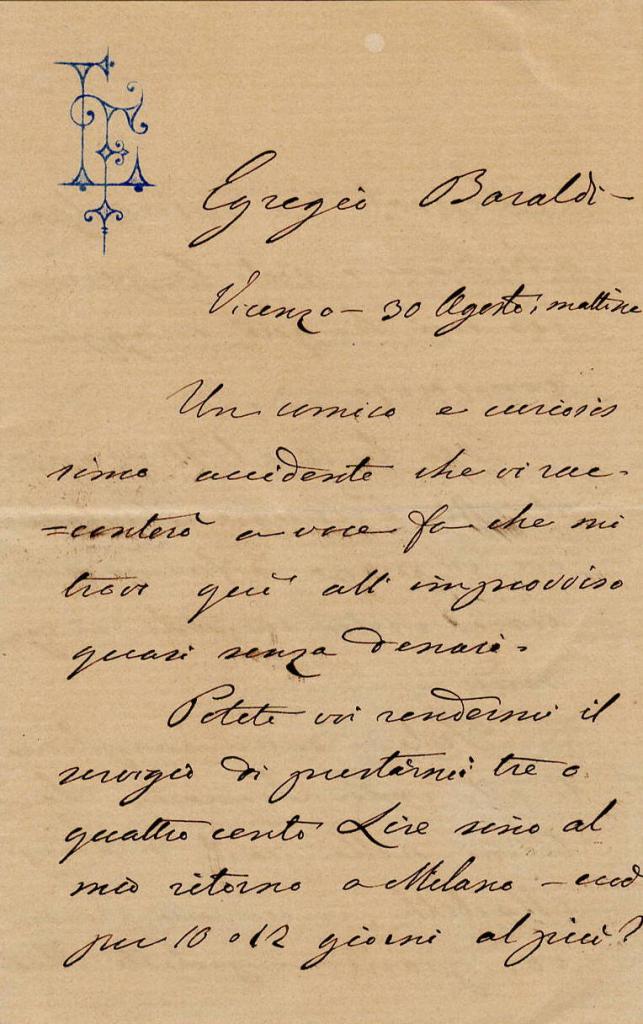 Egregio Baraldi -
Vicenza - 30 Agosto, mattina
Un comico e curiosis
simo accidente che vi rac-
=conterò a voce fa che mi
trovi quì all'improvviso
quasi senza denari.
Potete voi rendermi il
servigio di prestarmi tre o
quattro cento Lire sino al
mio ritorno a Milano - cioè
per 10 o 12 giorni al più?